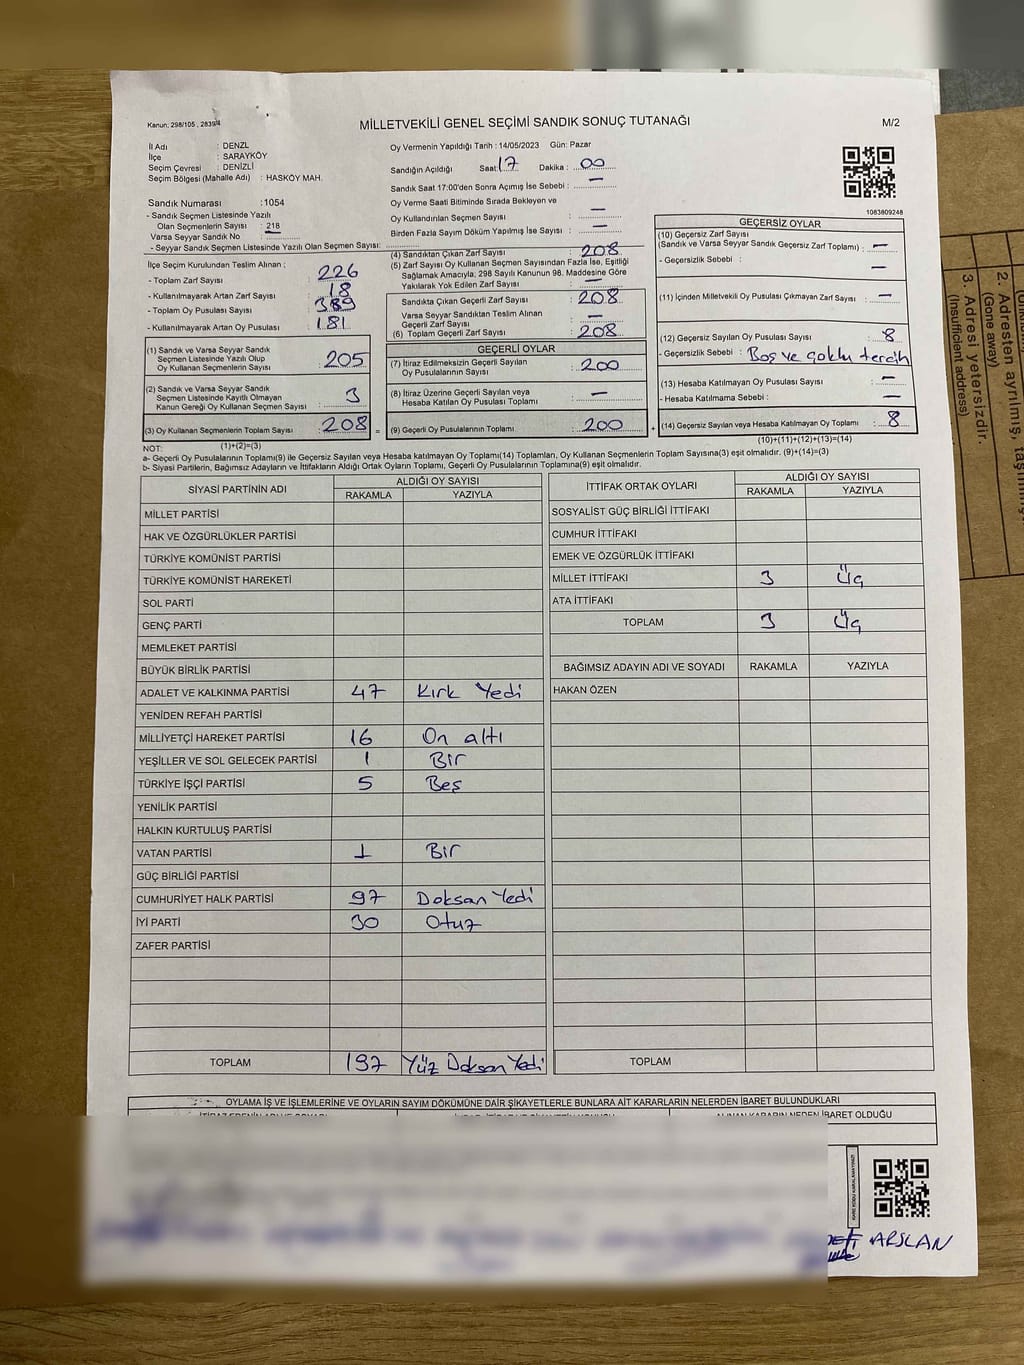 Kanun, 298/105 , 2839/4
MİLLETVEKİLİ GENEL SEÇİMİ SANDIK SONUÇ TUTANAĞI
M/2
İl Adı : DENZL
İlçe : SARAYKÖY
Seçim Çevresi : DENİZLİ
Seçim Bölgesi (Mahalle Adı) : HASKÖY MAH.
Sandık Numarası :1054
- Sandık Seçmen Listesinde Yazılı
Olan Seçmenlerin Sayısı : 218
Varsa Seyyar Sandık No :
- Seyyar Sandık Seçmen Listesinde Yazılı Olan Seçmen Sayısı:
Oy Vermenin Yapıldığı Tarih : 14/05/2023 Gün: Pazar
Sandığın Açıldığı Saat: 17 Dakika : 00
Sandık Saat 17:00'den Sonra Açımış İse Sebebi : —
Oy Verme Saati Bitiminde Sırada Bekleyen ve
Oy Kullandırılan Seçmen Sayısı : —
Birden Fazla Sayım Döküm Yapılmış İse Sayısı : —
1083809248
İlçe Seçim Kurulundan Teslim Alınan ;
- Toplam Zarf Sayısı : 226
- Kullanılmayarak Artan Zarf Sayısı : 18
- Toplam Oy Pusulası Sayısı : 389
- Kullanılmayarak Artan Oy Pusulası : 181
(1) Sandık ve Varsa Seyyar Sandık
Seçmen Listesinde Yazılı Olup
Oy Kullanan Seçmenlerin Sayısı : 205
(2) Sandık ve Varsa Seyyar Sandık
Seçmen Listesinde Kayıtlı Olmayan
Kanun Gereği Oy Kullanan Seçmen Sayısı : 3
(3) Oy Kullanan Seçmenlerin Toplam Sayısı : 208 =
(4) Sandıktan Çıkan Zarf Sayısı : 208
(5) Zarf Sayısı Oy Kullanan Seçmen Sayısından Fazla İse, Eşitliği
Sağlamak Amacıyla; 298 Sayılı Kanunun 98. Maddesine Göre
Yakılarak Yok Edilen Zarf Sayısı : —
Sandıkta Çıkan Geçerli Zarf Sayısı : 208
Varsa Seyyar Sandıktan Teslim Alınan
Geçerli Zarf Sayısı : —
(6) Toplam Geçerli Zarf Sayısı : 208
GEÇERLİ OYLAR
(7) İtiraz Edilmeksizin Geçerli Sayılan
Oy Pusulalarının Sayısı : 200
(8) İtiraz Üzerine Geçerli Sayılan veya
Hesaba Katılan Oy Pusulası Toplamı : —
(9) Geçerli Oy Pusulalarının Toplamı : 200 +
GEÇERSİZ OYLAR
(10) Geçersiz Zarf Sayısı
(Sandık ve Varsa Seyyar Sandık Geçersiz Zarf Toplamı) : —
- Geçersizlik Sebebi : —
(11) İçinden Milletvekili Oy Pusulası Çıkmayan Zarf Sayısı : —
(12) Geçersiz Sayılan Oy Pusulası Sayısı : 8
- Geçersizlik Sebebi : Boş ve çoklu tercih
(13) Hesaba Katılmayan Oy Pusulası Sayısı : —
- Hesaba Katılmama Sebebi : —
(14) Geçersiz Sayılan veya Hesaba Katılmayan Oy Toplamı : 8
NOT: (1)+(2)=(3)
(10)+(11)+(12)+(13)=(14)
a- Geçerli Oy Pusulalarının Toplamı(9) ile Geçersiz Sayılan veya Hesaba katılmayan Oy Toplamı(14) Toplamları, Oy Kullanan Seçmenlerin Toplam Sayısına(3) eşit olmalıdır. (9)+(14)=(3)
b- Siyasi Partilerin, Bağımsız Adayların ve İttifakların Aldığı Ortak Oyların Toplamı, Geçerli Oy Pusulalarının Toplamına(9) eşit olmalıdır.
SİYASİ PARTİNİN ADI ALDIĞI OY SAYISI
RAKAMLA YAZIYLA
MİLLET PARTİSİ
HAK VE ÖZGÜRLÜKLER PARTİSİ
TÜRKİYE KOMÜNİST PARTİSİ
TÜRKİYE KOMÜNİST HAREKETİ
SOL PARTİ
GENÇ PARTİ
MEMLEKET PARTİSİ
BÜYÜK BİRLİK PARTİSİ
ADALET VE KALKINMA PARTİSİ 47 Kırk Yedi
YENİDEN REFAH PARTİSİ
MİLLİYETÇİ HAREKET PARTİSİ 16 On altı
YEŞİLLER VE SOL GELECEK PARTİSİ 1 Bir
TÜRKİYE İŞÇİ PARTİSİ 5 Beş
YENİLİK PARTİSİ
HALKIN KURTULUŞ PARTİSİ
VATAN PARTİSİ 1 Bir
GÜÇ BİRLİĞİ PARTİSİ
CUMHURİYET HALK PARTİSİ 97 Doksan Yedi
İYİ PARTİ 30 Otuz
ZAFER PARTİSİ
TOPLAM 197 Yüz Doksan Yedi
İTTİFAK ORTAK OYLARI ALDIĞI OY SAYISI
RAKAMLA YAZIYLA
SOSYALİST GÜÇ BİRLİĞİ İTTİFAKI
CUMHUR İTTİFAKI
EMEK VE ÖZGÜRLÜK İTTİFAKI
MİLLET İTTİFAKI 3 Üç
ATA İTTİFAKI
TOPLAM 3 Üç
BAĞIMSIZ ADAYIN ADI VE SOYADI RAKAMLA YAZIYLA
HAKAN ÖZEN
TOPLAM
OYLAMA İŞ VE İŞLEMLERİNE VE OYLARIN SAYIM DÖKÜMÜNE DAİR ŞİKAYETLERLE BUNLARA AİT KARARLARIN NELERDEN İBARET BULUNDUKLARI
ALINAN KARARIN NEDEN İBARET OLDUĞU
ARSLAN
2. Adresten ayrılmış,
(Gone away)
3. Adresi yetersizdir.
(Insufficient address)